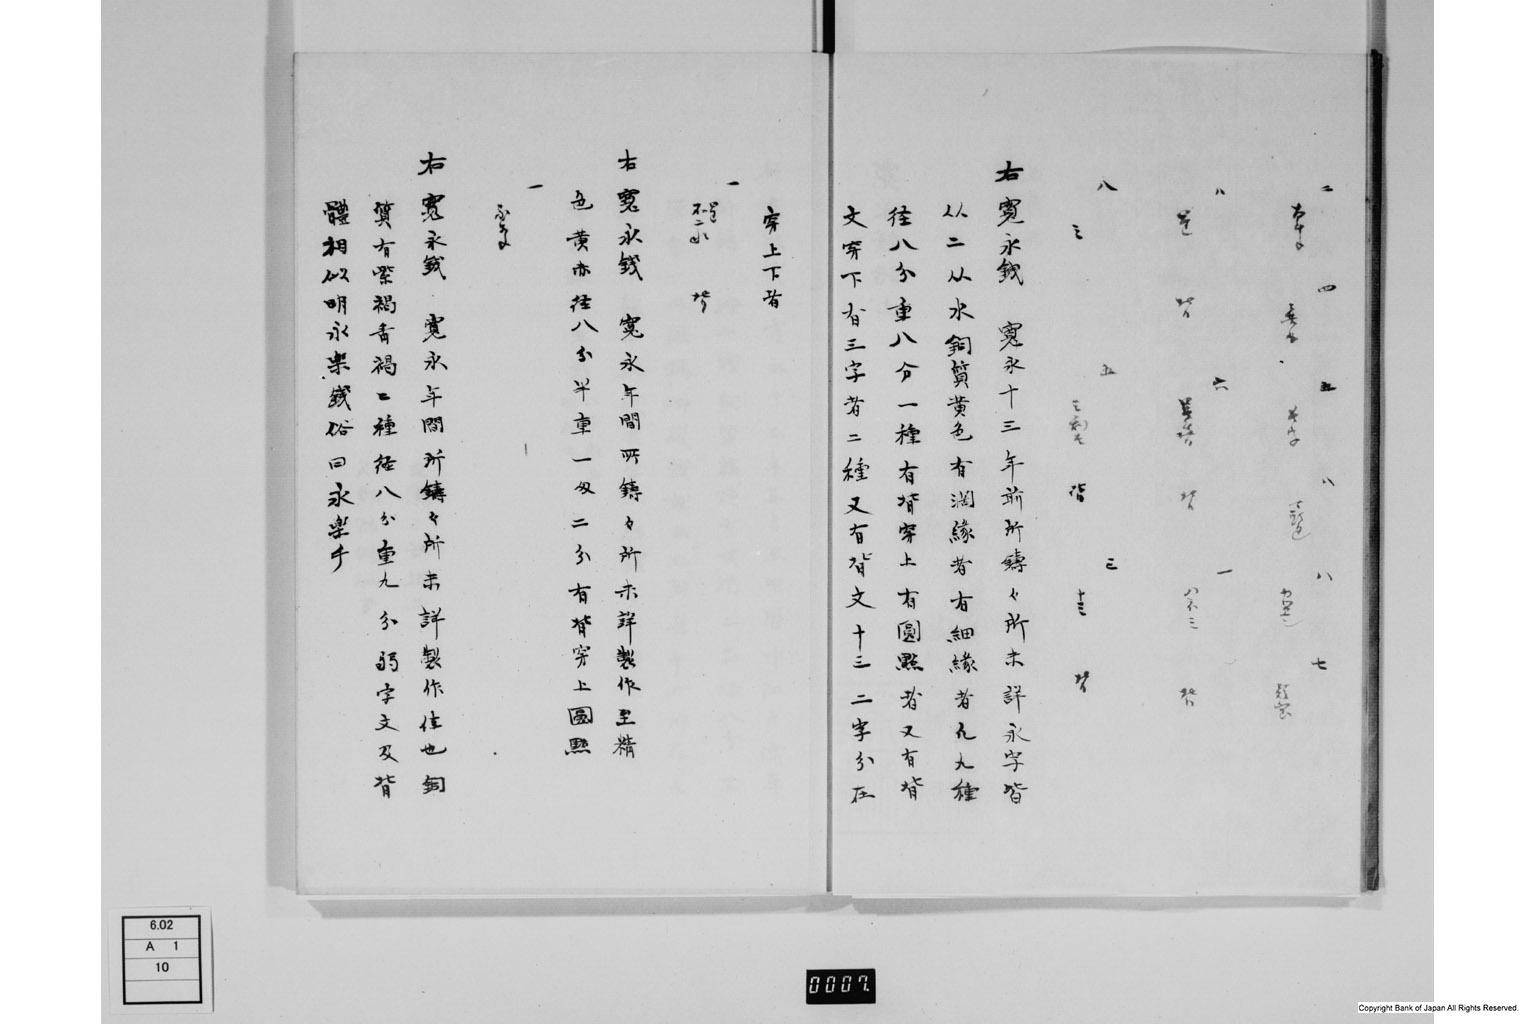 二 四 五 八 八 七
八 背 六 背 一 背
八 三 五 背 三 十三 背
右寛永銭 寛永十三年前所鑄々所未詳永字皆
从二从水銅質黄色有濶縁者有細縁者凡九種
径八分重八分一種有背穿上有圓點者又有背
文穿下有三字者二種又有背文十三二字分在
穿上下者
一 背
右寛永銭 寛永年間所鑄々所未詳製作至精
色黄赤径八分半重一匁二分有背穿上圓點
一
右寛永銭 寛永年間所鑄々所未詳製作佳也銅
質有紫褐青褐二種径八分重九分弱字文及背
體相似明永楽銭俗曰永楽手
6.02
A 1
10
0007.
Copyright Bank of Japan All Rights Reserved.